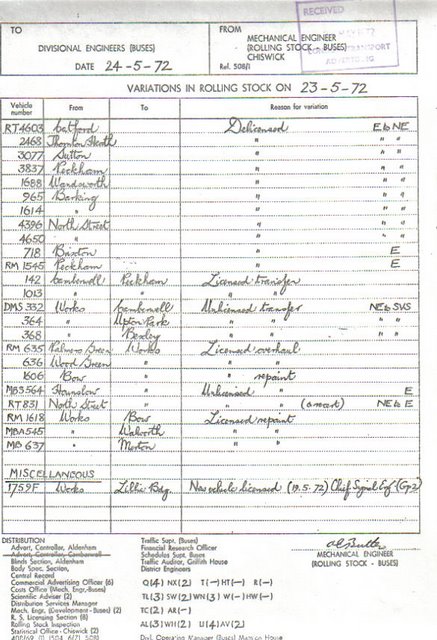 RECEIVED
TO
DIVISIONAL ENGINEERS (BUSES)
DATE 24-5-72
FROM
MECHANICAL ENGINEER
(ROLLING STOCK - BUSES)
CHISWICK
Ref. 508/1
TRANSPORT
ADVERTISING
VARIATIONS IN ROLLING STOCK ON 23-5-72
Vehicle number From To Reason for variation
RT4603 Catford Delicensed E to NE
2468 Thornton Heath " " "
3077 Sutton " " "
3837 Peckham " " "
1688 Wandsworth " " "
965 Barking " " "
1614 " " " "
4396 North Street " " "
4650 " " " "
718 Brixton " E
RM 1545 Peckham " E
142 Camberwell Peckham Licensed transfer
1013 " " " "
DMS 332 Works Camberwell Unlicensed transfer NE to SVS
364 " Upton Park " " " "
368 " Bexley " " " "
RM 635 Palmers Green Works Licensed overhaul
636 Wood Green " " "
1606 Bow " " repaint
MBS564 Hounslow " Unlicensed " E
RT831 North Street " " " NE to E
RM 1618 Works Bow Licensed repaint
MBA545 " Walworth " "
MB 637 " Merton " "
MISCELLANEOUS
1759F Works Lillie Bdg. New vehicle licensed (19.5.72) Chief Signal Eng. (Gp2)
DISTRIBUTION
Advert, Controller, Aldenham
Advert, Controller, Camberwell
Blinds Section, Aldenham
Body Spec, Section,
Central Record
Commercial Advertising Officer (6)
Costs Office (Mech, Engr-Buses)
Scientific Adviser (2)
Distribution Services Manager
Mech. Engr, (Development-Buses) (2)
R. S. Licensing Section (8)
Rolling Stock Inspection
Statistical Office - Chiswick (2)
Traffic Supt. (Buses)
Financial Research Officer
Schedules Supt. Buses
Traffic Auditor, Griffith House
District Engineers
Q(4) NX(2) T(-) HT(-) R(-)
TL(3) SW(2) WN(3) W(-) HW(-)
TC(2) AR(-)
AL(3) WH(2) U(4) AV(2)
Divl. Operating Manager (Buses) Manico House
MECHANICAL ENGINEER
(ROLLING STOCK - BUSES)